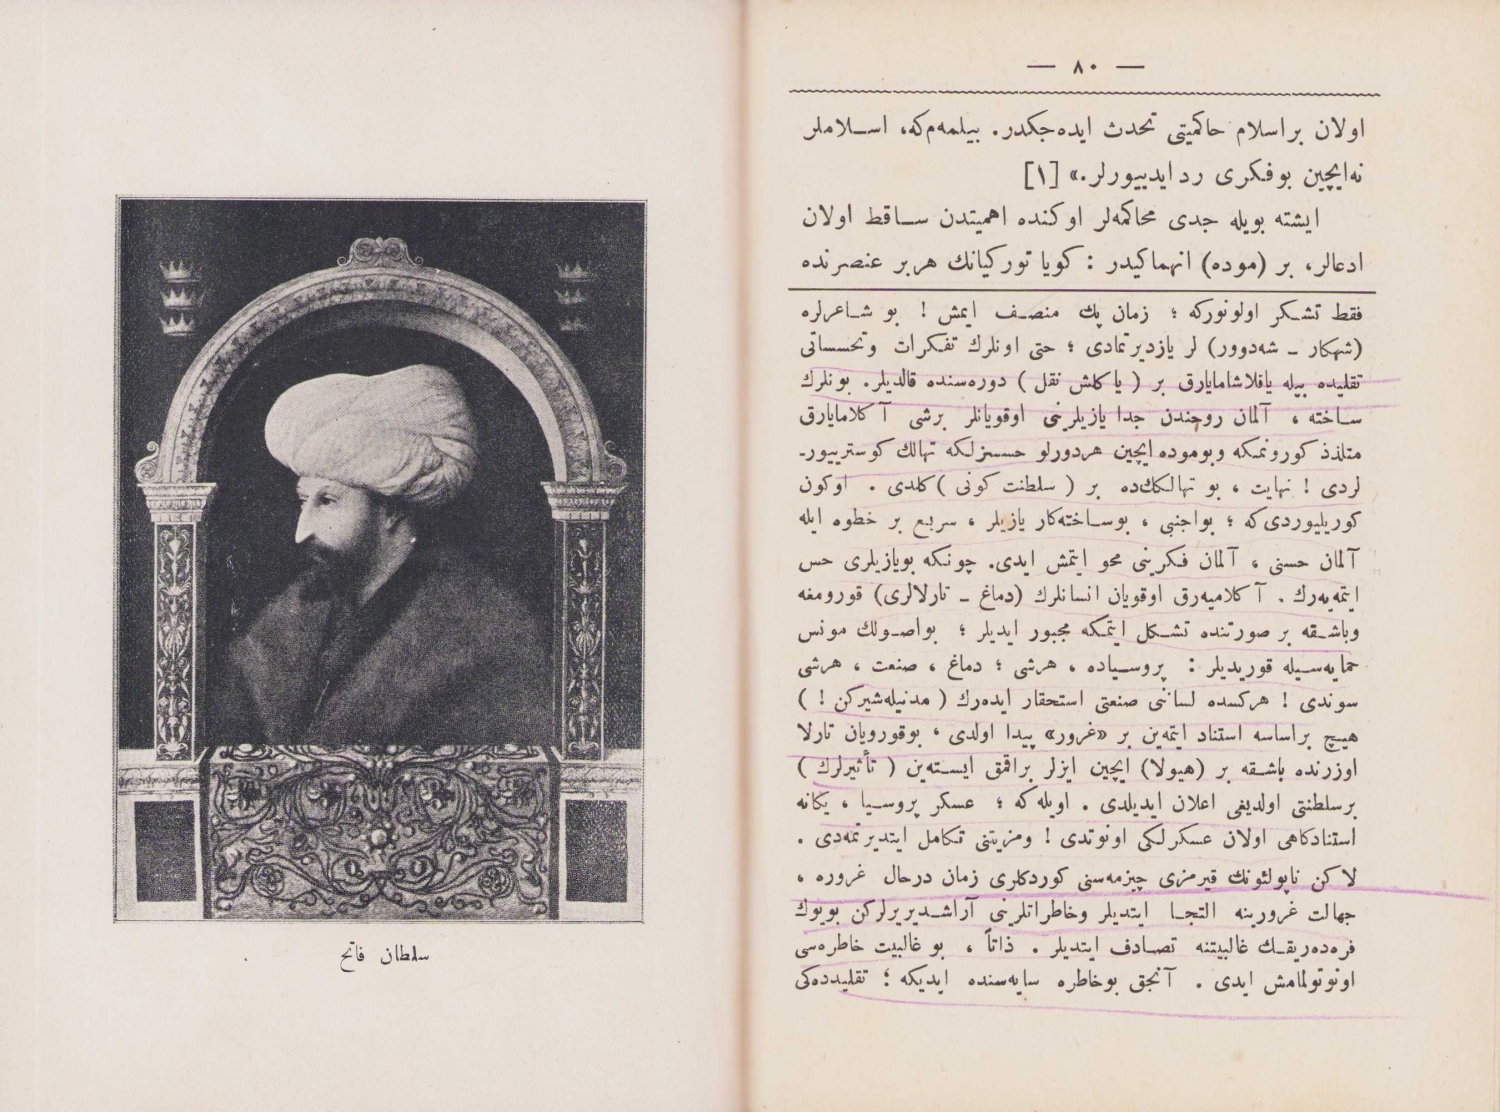 — ٨٠ —
اولان بر اسلام حاكميتی تحدث ايده‌جكدر. بيلمه‌م‌كه، اسـلاملر
نه‌ايچين بوفكری رد ايدييورلر.» [١]
ايشته بويله جدی محاكمه‌لر اوكنده اهميتدن سـاقط اولان
ادعالر، بر (موده) انهماكيدر : كويا توركيانك هربر عنصرنده
فقط تشـكر اولونوركه ؛ زمان پك منصـف ايمش ! بو شـاعرلره
(شهكار ـ شه‌دوور) لر يازديرتمادی ؛ حتی اونلرك تفكرات وتحسساتی
تقليده بيله ياقلاشامايارق بر ( ياكلش نقل ) دوره‌سنده قالديلر. بونلرك
سـاخته ، آلمان روحندن جدا يازيلرينی اوقويانلر برشی آكلامايارق
متلذذ كورونمكه وبوموده ايچين هردورلو حسسزلكه تهالك كوسترييور-
لردی ! نهايت ، بو تهالكك‌ده بر ( سلطنت كونی ) كلدی . اوكون
كوريليوردی‌كه ؛ بواجنبی ، بوسـاخته‌كار يازيلر ، سريع بر خطوه ايله
آلمان حسنی ، آلمان فـكرينی محو ايتمش ايدی. چونكه بويازيلری حس
ايتمه‌يه‌رك . آكلاميه‌رق اوقويان انسانلرك (دماغ ـ تارلالری) قورومغه
وباشـقه بر صورتنده تشـكل ايتمكه مجبور ايديلر ؛ بواصـولك مونس
حمايه‌سـيله قوريديلر : پروسـياده ، هرشی ؛ دماغ ، صنعت ، هرشی
سوندی ! هركسده لساننی صنعتی استحقار ايده‌رك ( مدنيله‌شيركن ! )
هيـچ براساسه استناد ايتمه‌ين بر «غرور» پيدا اولدی ، بوقورويان تارلا
اوزرنده باشـقه بر (هيولا) ايچين ايزلر براقمق ايسـته‌ين ( تأثيرلرك )
برسلطنتی اولديغی اعلان ايديلدی . اويله‌كه ؛ عسكر پروسـيا ، يكانه
استنادكاهی اولان عسكرلكی اونوتدی ! ومزيتنی تكامل ايتديرتمه‌دی .
لاكن ناپولئونك قيرمزی چيزمه‌سنی كوردكلری زمان درحال غروره ،
جهالت غرورينه التجـا ايتديلر وخاطراتلرينی آراشـديريرلركن بويوك
فره‌ده‌ريقـك غالبيتنه تصـادف ايتديلر . ذاتاً ، بو غالبيت خاطره‌سی
اونوتولمامش ايدی . آنجق بوخاطره سايه‌سنده ايديكه ؛ تقليدده‌كی
سلطان فاتح